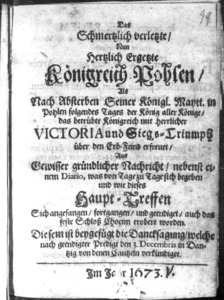 Das
Schmertzlich verletzte,
Nun
Hertzlich Ergetzte
Königreich Pohlen/
Als
Nach Absterben Seiner Königl. Maytt. in
Pohlen folgendes Tages der König aller Könige,
das betrübte Königreich mit Herrlicher
VICTORIA und Siegs-Triumpß
über den Erb-Feind erfreuet/
Aus
Gewisser gründlicher Nachricht/ nebenst einem
Diario, was von Tage zu Tage sich begeben
und wie dieses
Haupt-Treffen
Sich angefangen/ fortgangen/ und geendiget/ auch das
feste Schloß Chocim erobert worden.
Diesem ist beygefügt die Dancksagung/ welche
nach geendigter Predigt den 3. Decembris in Dantzig
von denen Cantzeln verkündiget.
Im Jahr 1673.